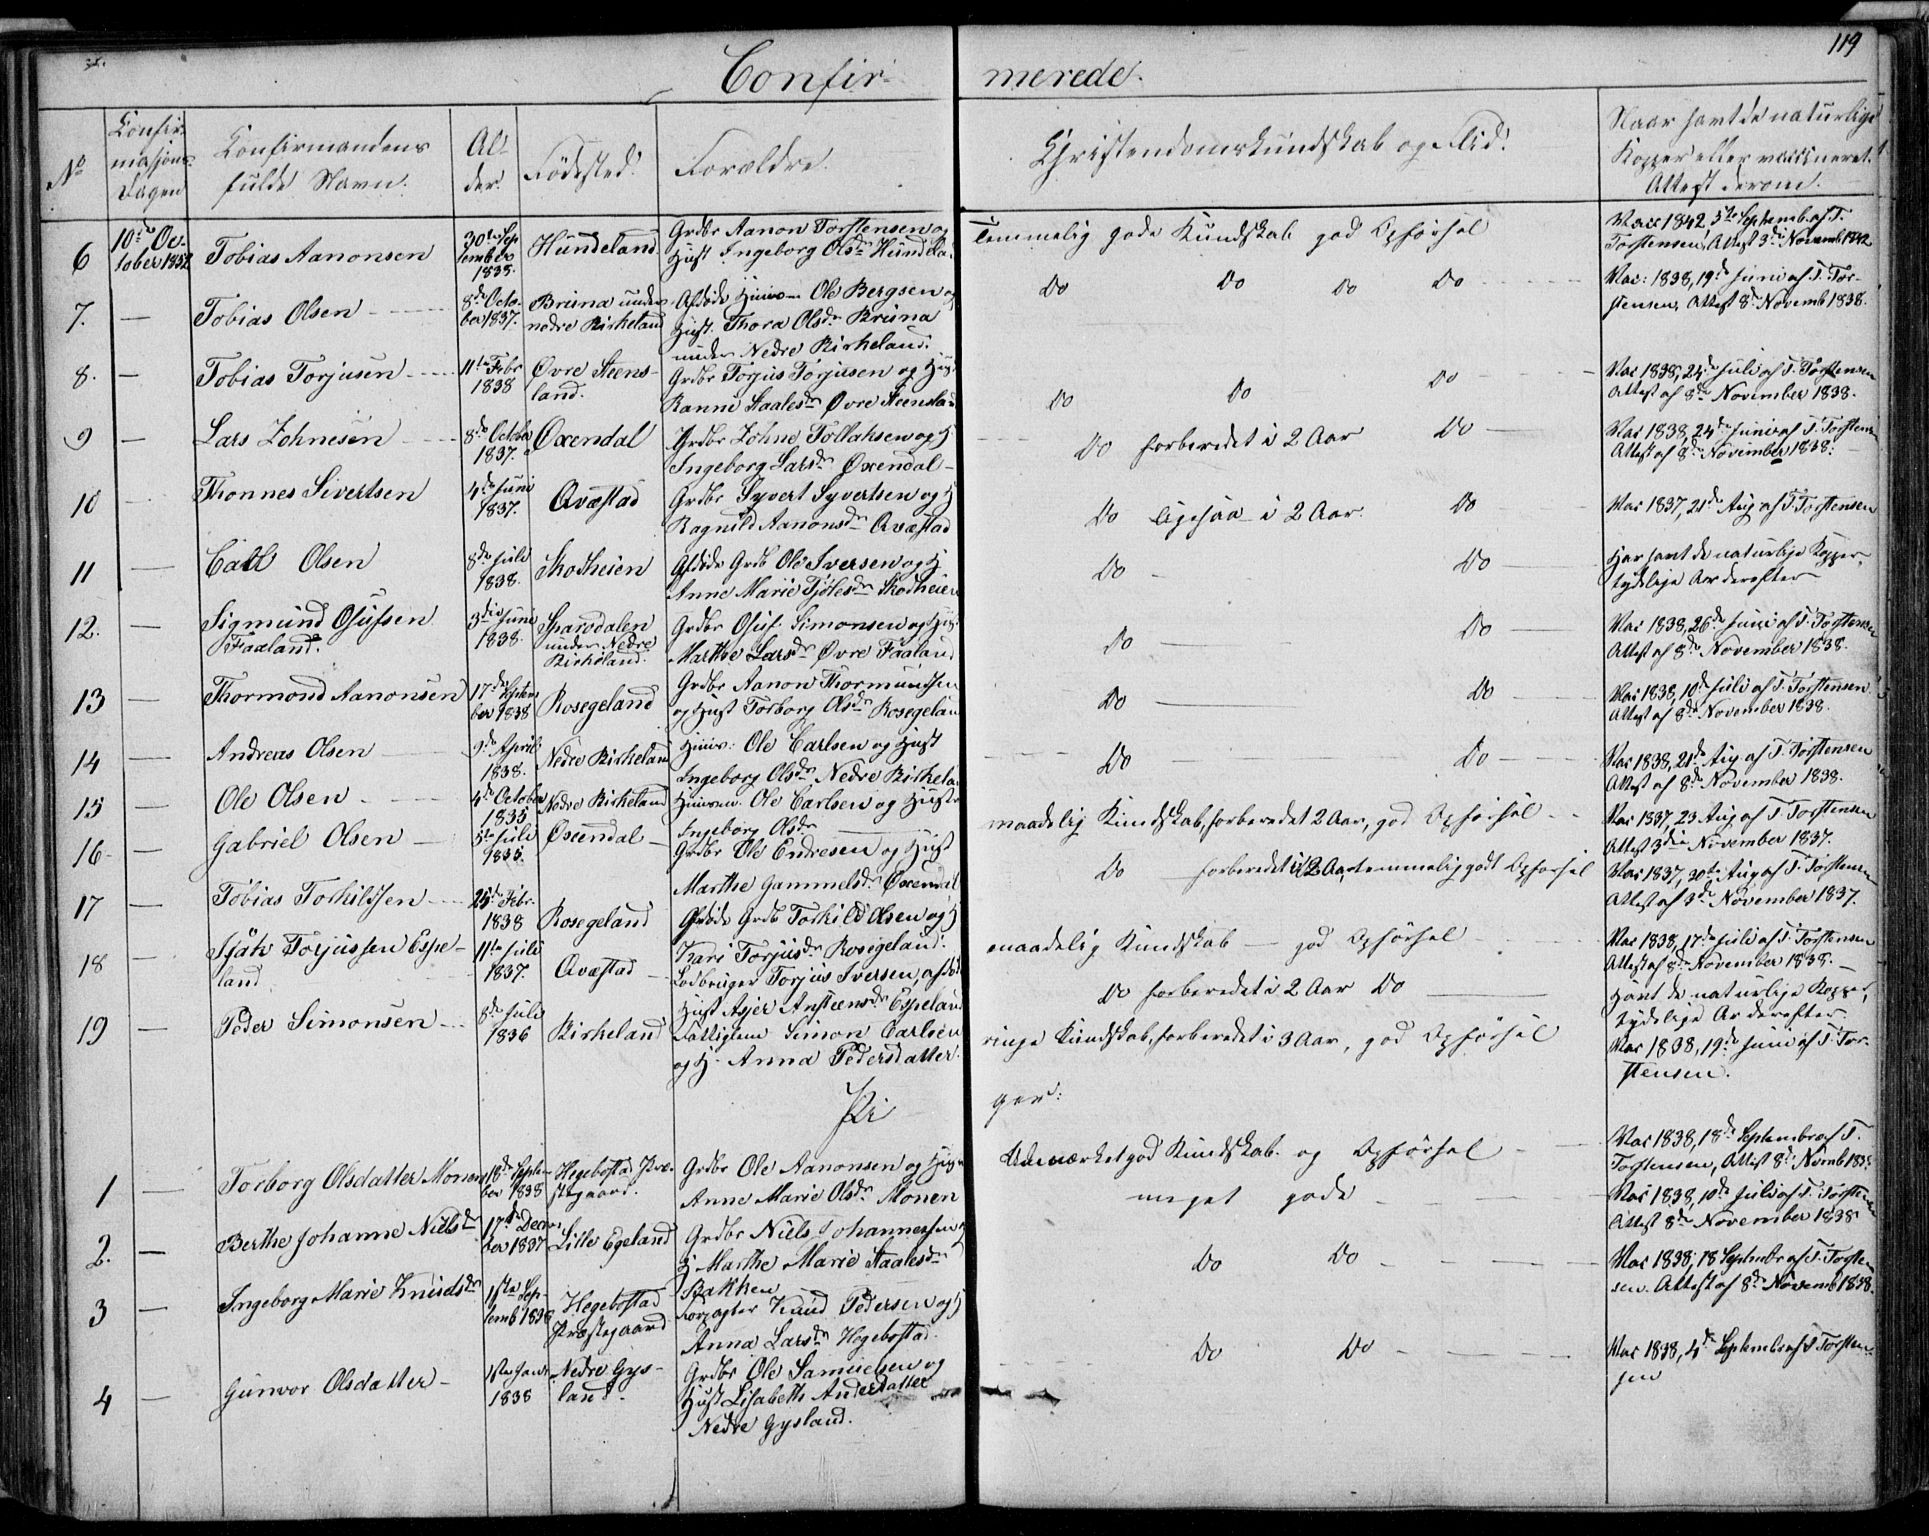 119
Confir- merede.
No
Confir-
masjons-
Dagen
Konfirmandens
fulde Navn.
Al-
der.
Födested.
Forældre.
Christendomskundskab og Flid.
Naar havt de naturlige
Kopper eller vaccineret.
Attest derom.
6 10de Oc-
tober 1852 Tobias Aanonsen 30te Sep
tember
1838. Hundeland Grdbr Aanon Torstensen og
Hust Ingeborg Olsdr Hundela
Temmelig gode Kundskab god Opførsel
Vacc 1842, 5te Septemb. af T.
Torstensen, Attest 3die Novemb 1842
7. — Tobias Olsen 8de Octo-
ber 1837. Bruna under
nedre Birkeland Afdöde Huusm Ole Bergsen og
Hust. Thora Olsdr Bruna
under Nedre Birkeland.
Do Do Do Do
Vac: 1838, 19de Juni af T. Tor-
stensen, Attest 8de Novemb 1838.
8. — Tobias Torjusen 11te Febr
1838 Øvre Steens-
land. Grdbr Torjus Torjusen og Hust
Ranne Staalesdr Øvre Steensland
Do Do Do
Vac 1838, 24de Juli af T. Torstensen
Attest af 8de November 1838.
9 — Lars Zohnesen 8de October
1837. Oxendal Grdbr Zohne Tollaksen og H.
Ingeborg Larsdr Oxendal
Do forberedet i 2 Aar Do
Vac 1838, 24de Juni af T. Torstensen
Attest af 8de November 1838.
10 Thonnes Sivertsen 4de Juni
1837. Qvæstad Grdbr Syvert Syvertsen og H
Ragnild Aanonsdr Qvæstad
Do ligesaa i 2 Aar. Do
Vac 1837, 21de Aug af T. Torstensen
11 — Carl Olsen 8de Juli
1838. Skodheien Afdöde Grdb Ole Iversen og H
Anne Marie Tjölesdr Skodheien
Do Do
Har havt de naturlige Kopper,
tydelige Ar derefter
12. — Sigmund Osufsen
Faaland. 3die Juni
1838. Sparsdalen
under Nedre
Birkeland. Grdbr Osuf Simonsen og Hus
Marthe Larsdr Øvre Faaland
Do Do
Vac 1838, 26de Juni af T. Torstensen
Attest af 8de November 1838.
13 — Thormond Aanonsen 17de Septem
ber 1838 Rosegeland Grdbr Aanon Thormundsen
og Hust Torborg Olsdr Rosegelan
Do Do
Vac 1838, 10de Juli af T. Torstensen
Attest af 8de November 1838.
14 — Andreas Olsen 9de April
1838. Nedre Birkeland Huus: Ole Carlsen og Hust
Ingeborg Olsdr Nedre Birkela
Do Do
Vac 1838, 21de Aug af T. Torstensen
Attest af 8de November 1838.
15 — Ole Olsen 4de October
1835 Nedre Birkeland Huusm. Ole Carlsen og Hustr
Ingeborg Olsdr
maadelig Kundskab, forberedet 2 Aar, god Opførsel
Vac 1837, 23 Aug af T Torstensen
Attest 3die November 1837.
16 — Gabriel Olsen 5te Juli
1835. Øxendal Grdbr Ole Endresen og Hust
Marthe Gammelsdr Øxendal
Do forberedet i 2 Aar, temmelig godt Opførsel
Vac 1837, 30te Aug af T. Torstensen
Attest af 3de November 1837.
17 — Tobias Torkildsen 25de Febr.
1838 Rosegeland Afdöde Grdb Torkild Olsen og H
Kari Torjusdr Rosegeland.
maadelig Kundskab — god Opførsel
Vac 1838, 17de Juli af T. Torstensen
Attest af 8de November 1838.
18 — Sjäk Torjussen Espe-
land 11te Juli
1837. Qvæstad Lodbruger Torjus Iversen, afdöd
Hust Asjer Anstensdr Espeland
Do forberedet i 2 Aar Do
Havt de naturlige Kopper,
tydelige Ar derefter.
19 — Peder Simonsen 8de Juli
1836 Birkeland Fattiglem Simon Carlsen
og H. Anna Pedersdatter.
ringe Kundskab, forberedet i 3 Aar, god Opförsel
Vac 1838, 19de Juni af T. Tor-
stensen.
Pi ger:
1 — Torborg Olsdatter Monen 18de Septe-
ber 1838 Hegebostad Præ-
stegaard. Grdbr Ole Aanonsen og Hust
Anne Marie Olsdr Monen
Udmærket god Kundskab og Opførsel
Vac 1838, 18de Septembr af T.
Torstensen, Attest 8de Novmb 1838
2. — Berthe Johanne Nielsdr 17de Decem
ber 1837 Lille Egeland Grdbr Niels Johannessen og
H Marthe Marie Staalesdr
Bakken
meget gode
Vac 1838, 10de Juli af T. Torstensen
Attest 8de November 1838
3 — Ingeborg Marie Knudsdr 1ste Sep-
temb 1838 Hegebostad
Præstegaard Forpagter Knud Pedersen og H
Anna Larsdr Hegebostad.
Do Do
Vac 1838, 18 Septembr af T. Torsten
sen. Attest af 8de Novemb 1838.
4 — Gunvor Olsdatter 1ste Janr.
1838 Nedre Gys-
land. Grdbr Ole Samuelsen og
Hust Lisabeth Andersdatter
Nedre Gysland.
Do Do
Vac 1838, 4de Septembr af T Torsten-
sen